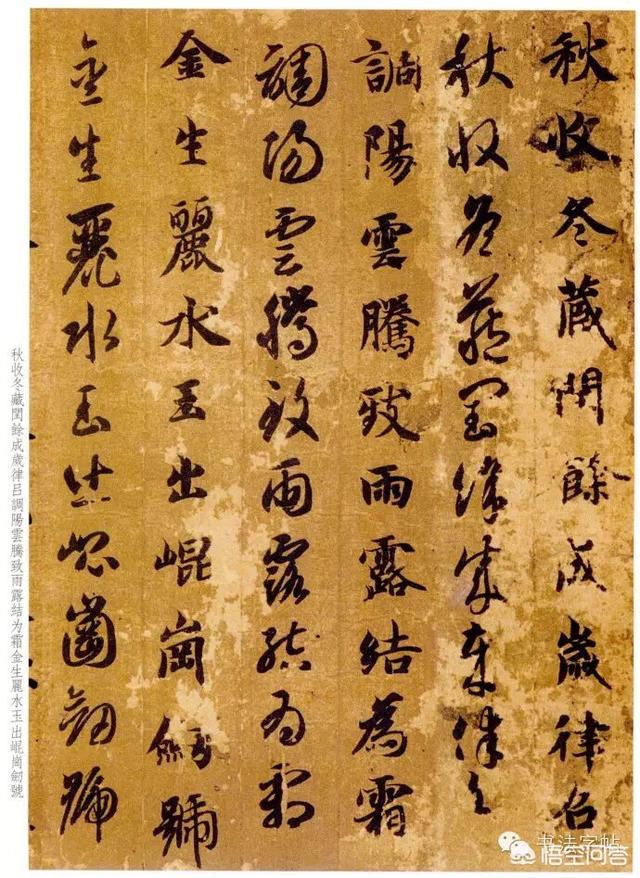 秋收冬藏閏餘成歲律呂
秋收冬藏閏餘成歲律呂
調陽雲騰致雨露結為霜
調陽雲騰致雨露結為霜
金生麗水玉出崐崗劒號
金生麗水玉出崐崗劒號
秋收冬藏閏餘成歲律吕調陽雲騰致雨露结为霜金生麗水玉出崐崗劒號
书法字帖
悟空问答